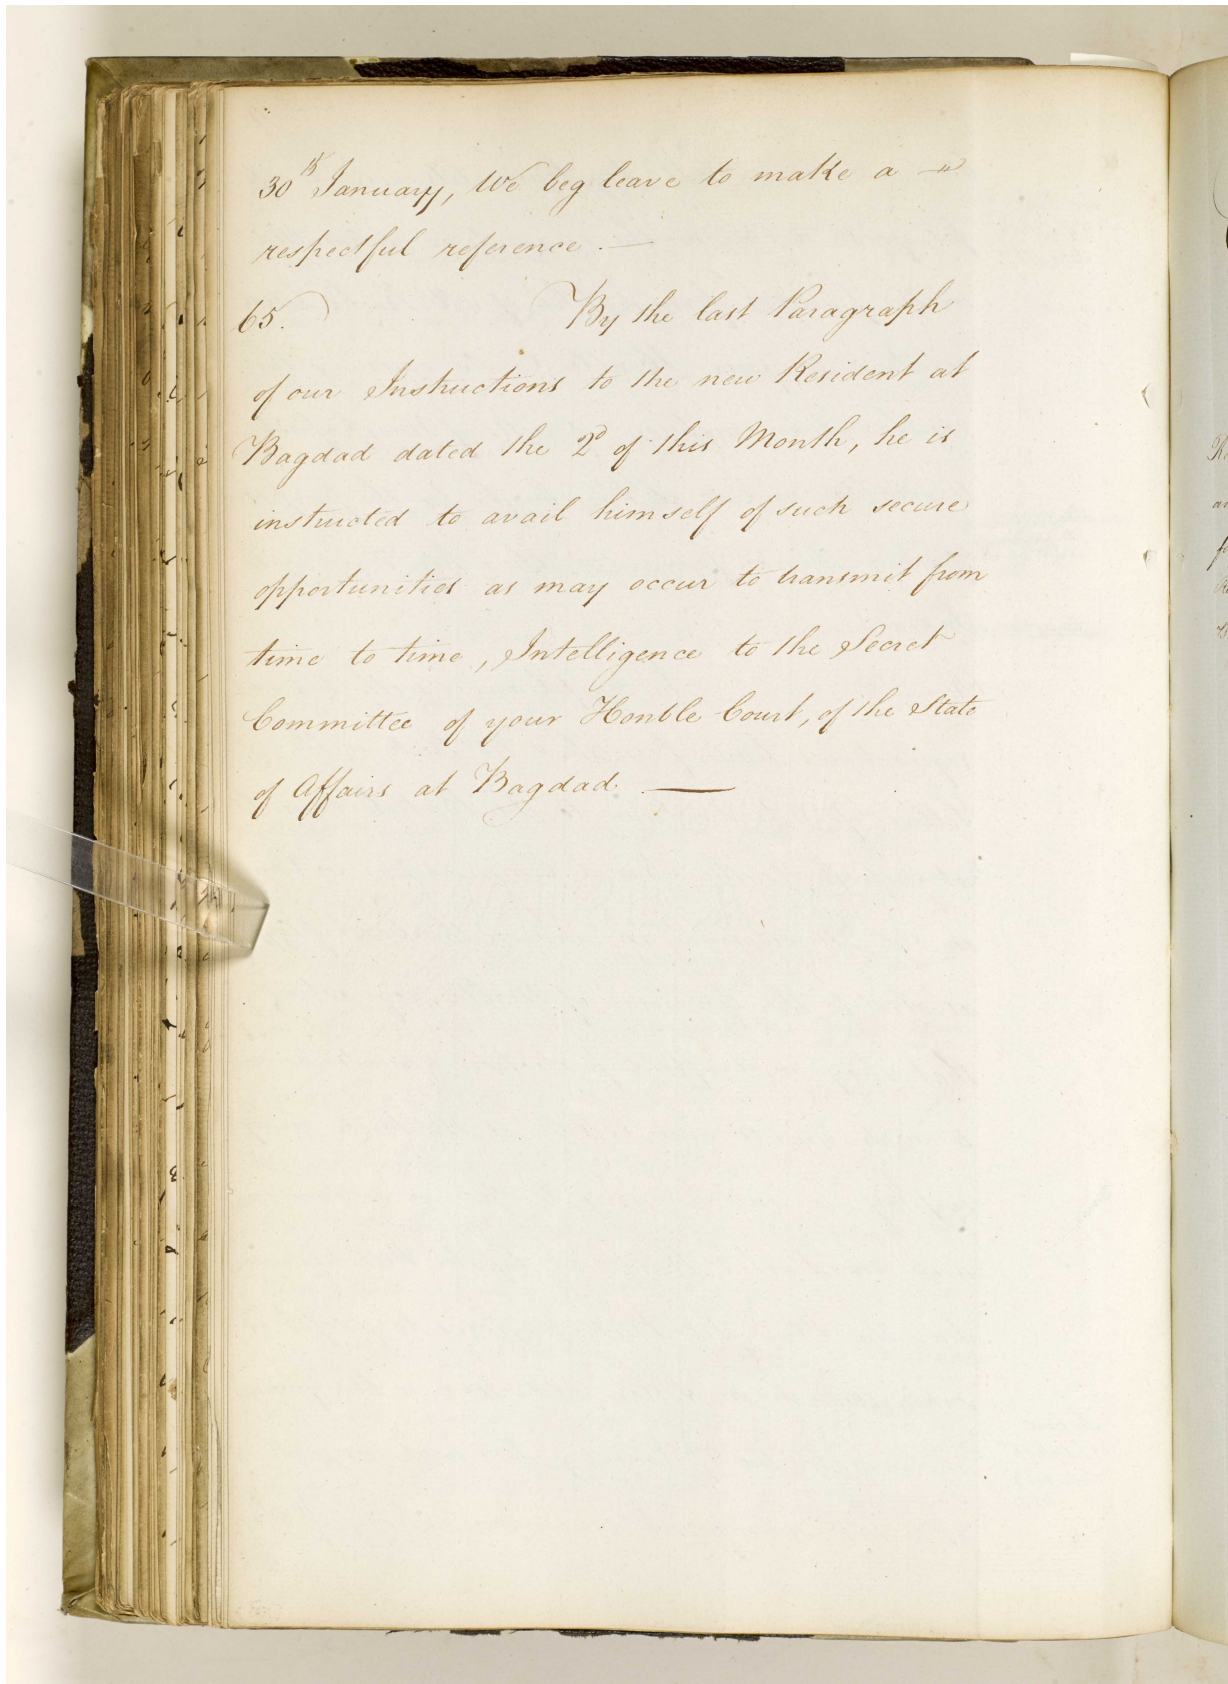 30th January, We beg leave to make a
respectful reference. —
65. By the last Paragraph
of our Instructions to the new Resident at
Bagdad dated the 2d of this Month, he is
instructed to avail himself of such secure
opportunities as may occur to transmit from
time to time, Intelligence to the Secret
Committee of your Honble Court, of the State
of Affairs at Bagdad. —